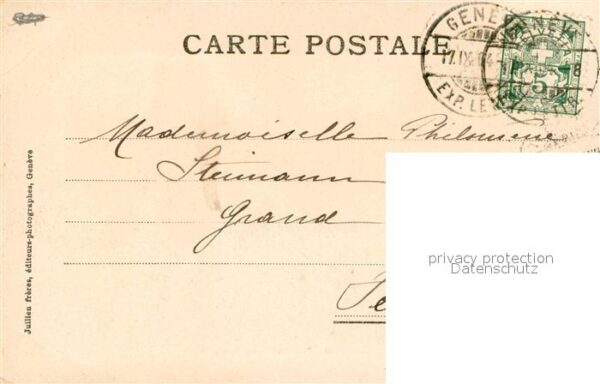 CARTE POSTALE
GENÈVE
17.IX.04
8
EXP. LETT.
5
Mademoiselle Philomene
Steimann
Grand
Julien frères, éditeurs-photographes, Genève
privacy protection
Datenschutz